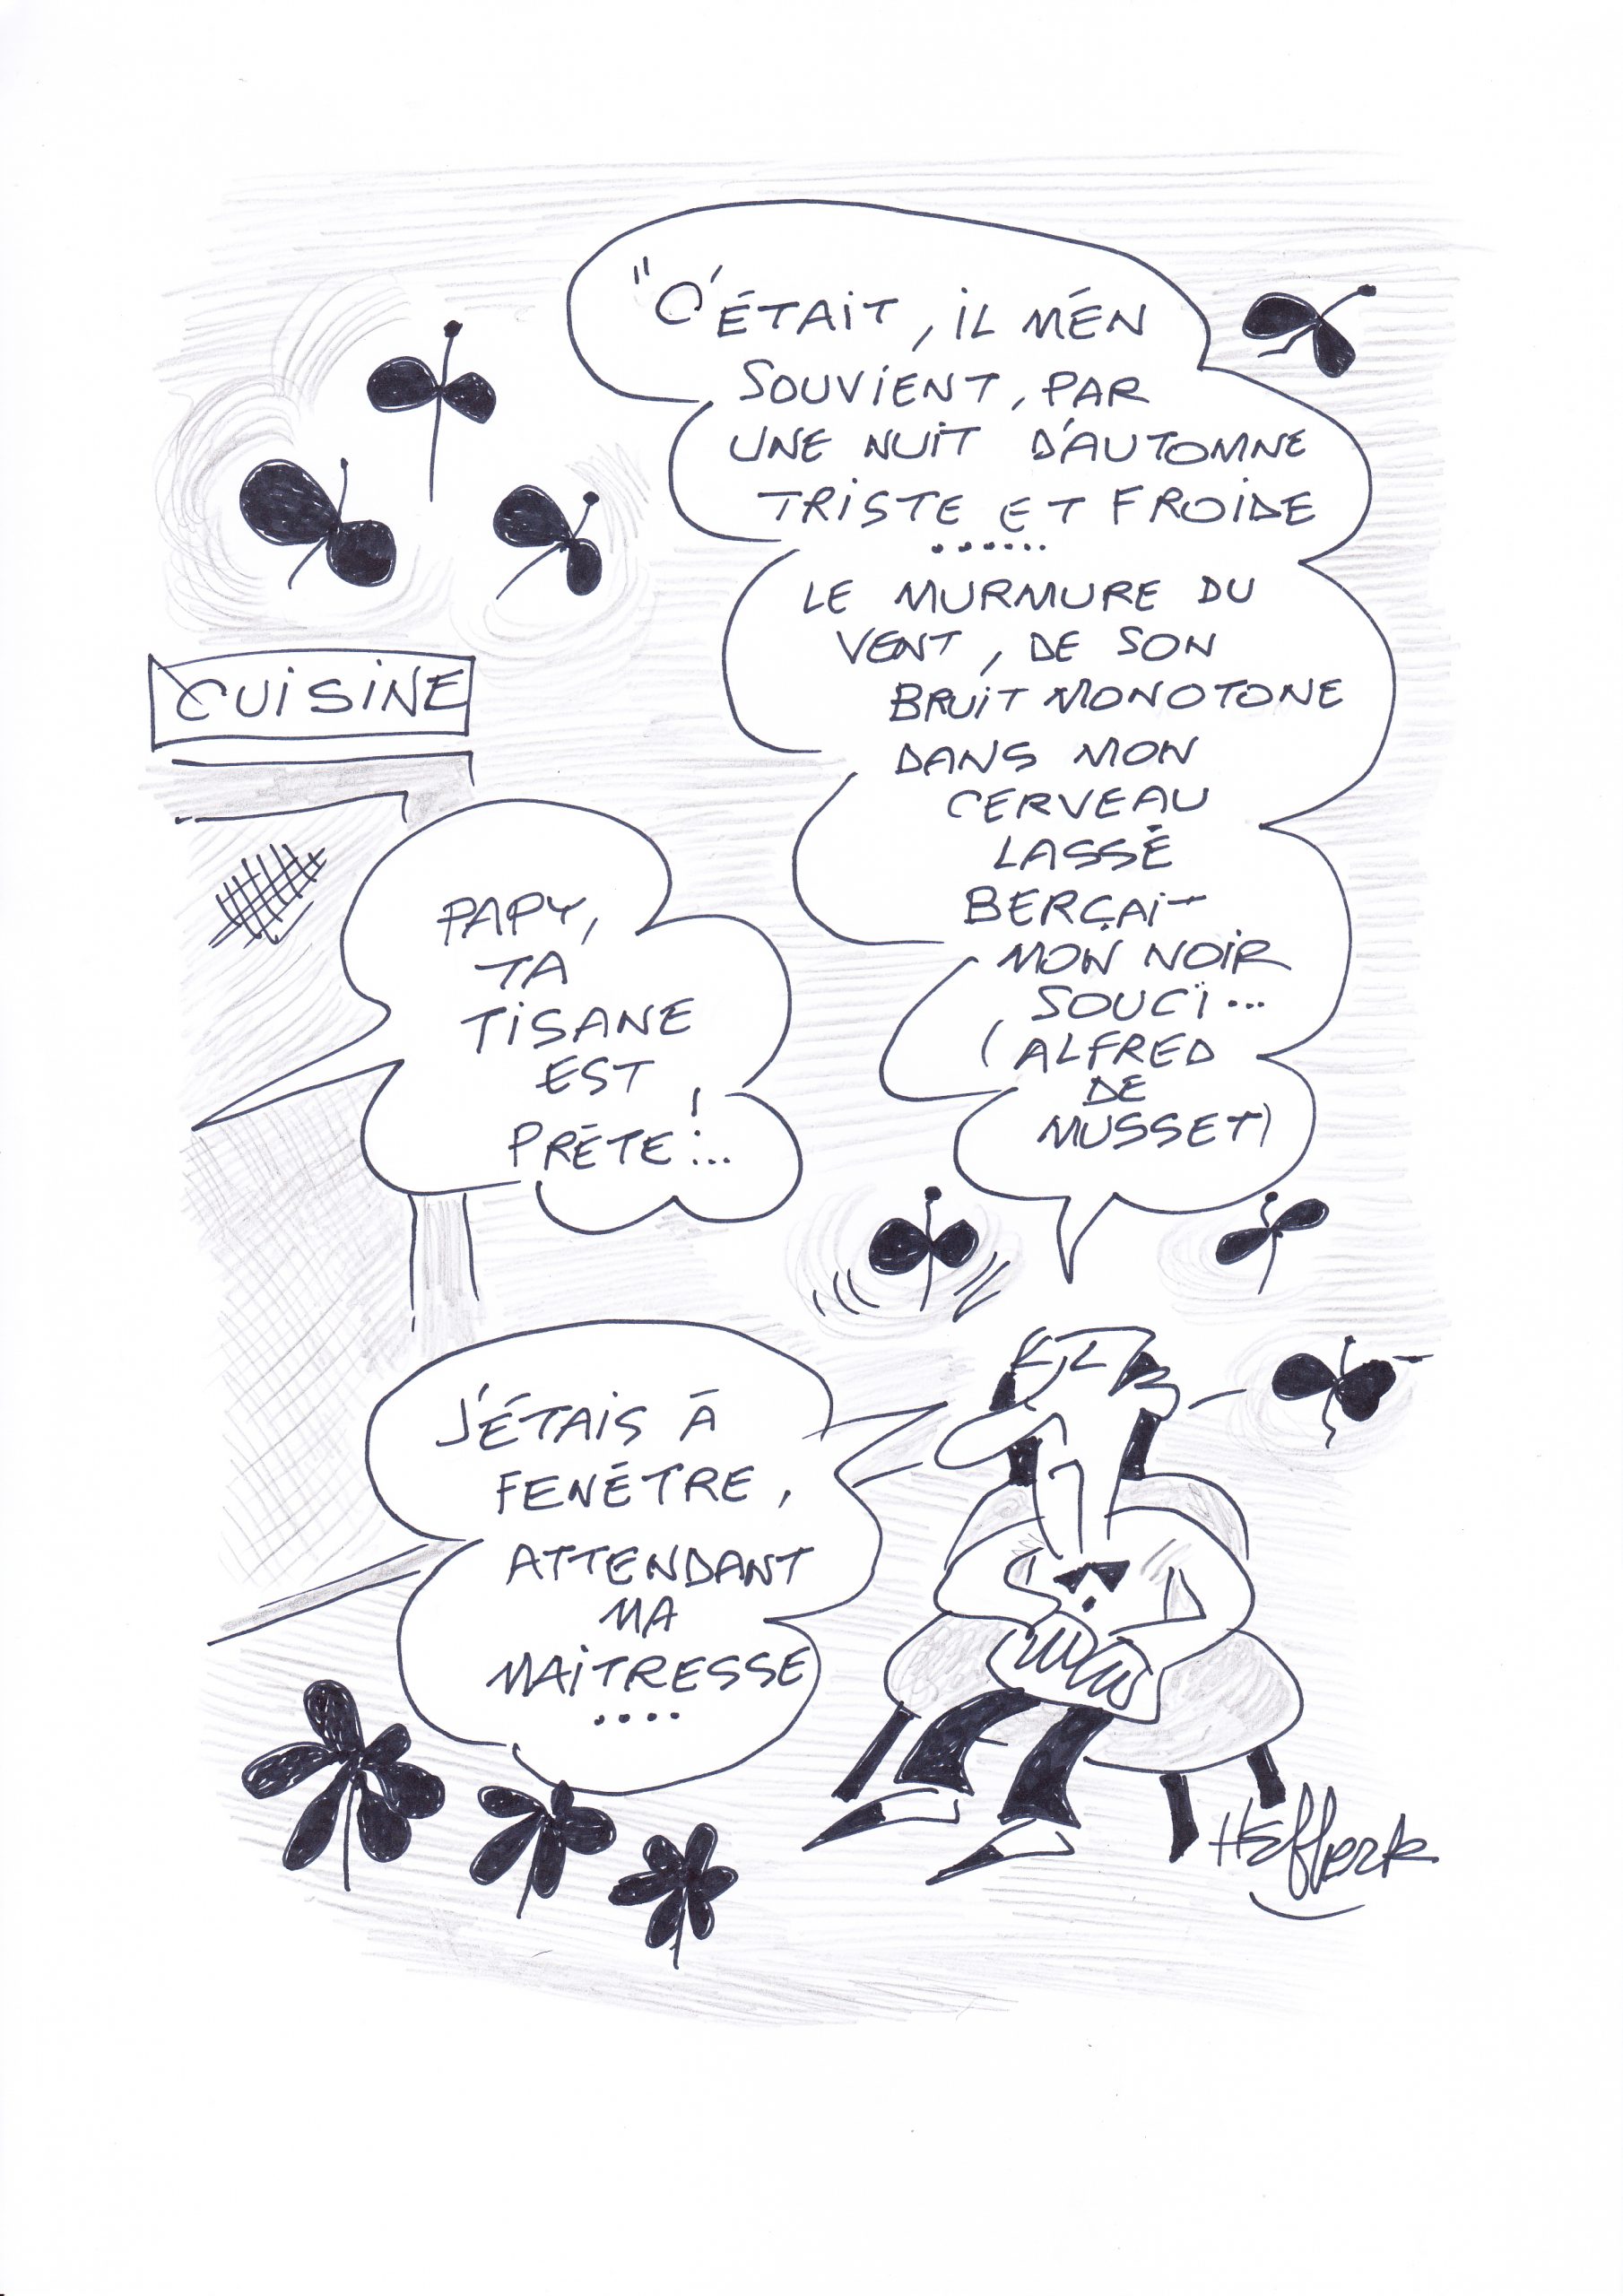 "C'ÉTAIT, IL M'ÉN
SOUVIENT, PAR
UNE NUIT D'AUTOMNE
TRISTE ET FROIDE
......
LE MURMURE DU
VENT, DE SON
BRUIT MONOTONE
DANS MON
CERVEAU
LASSÉ
BERÇAIT
MON NOIR
SOUCI...
(ALFRED
DE
MUSSET)
CUISINE
PAPY,
TA
TISANE
EST
PRÊTE!...
J'ÉTAIS À
FENÊTRE,
ATTENDANT
MA
MAITRESSE
....